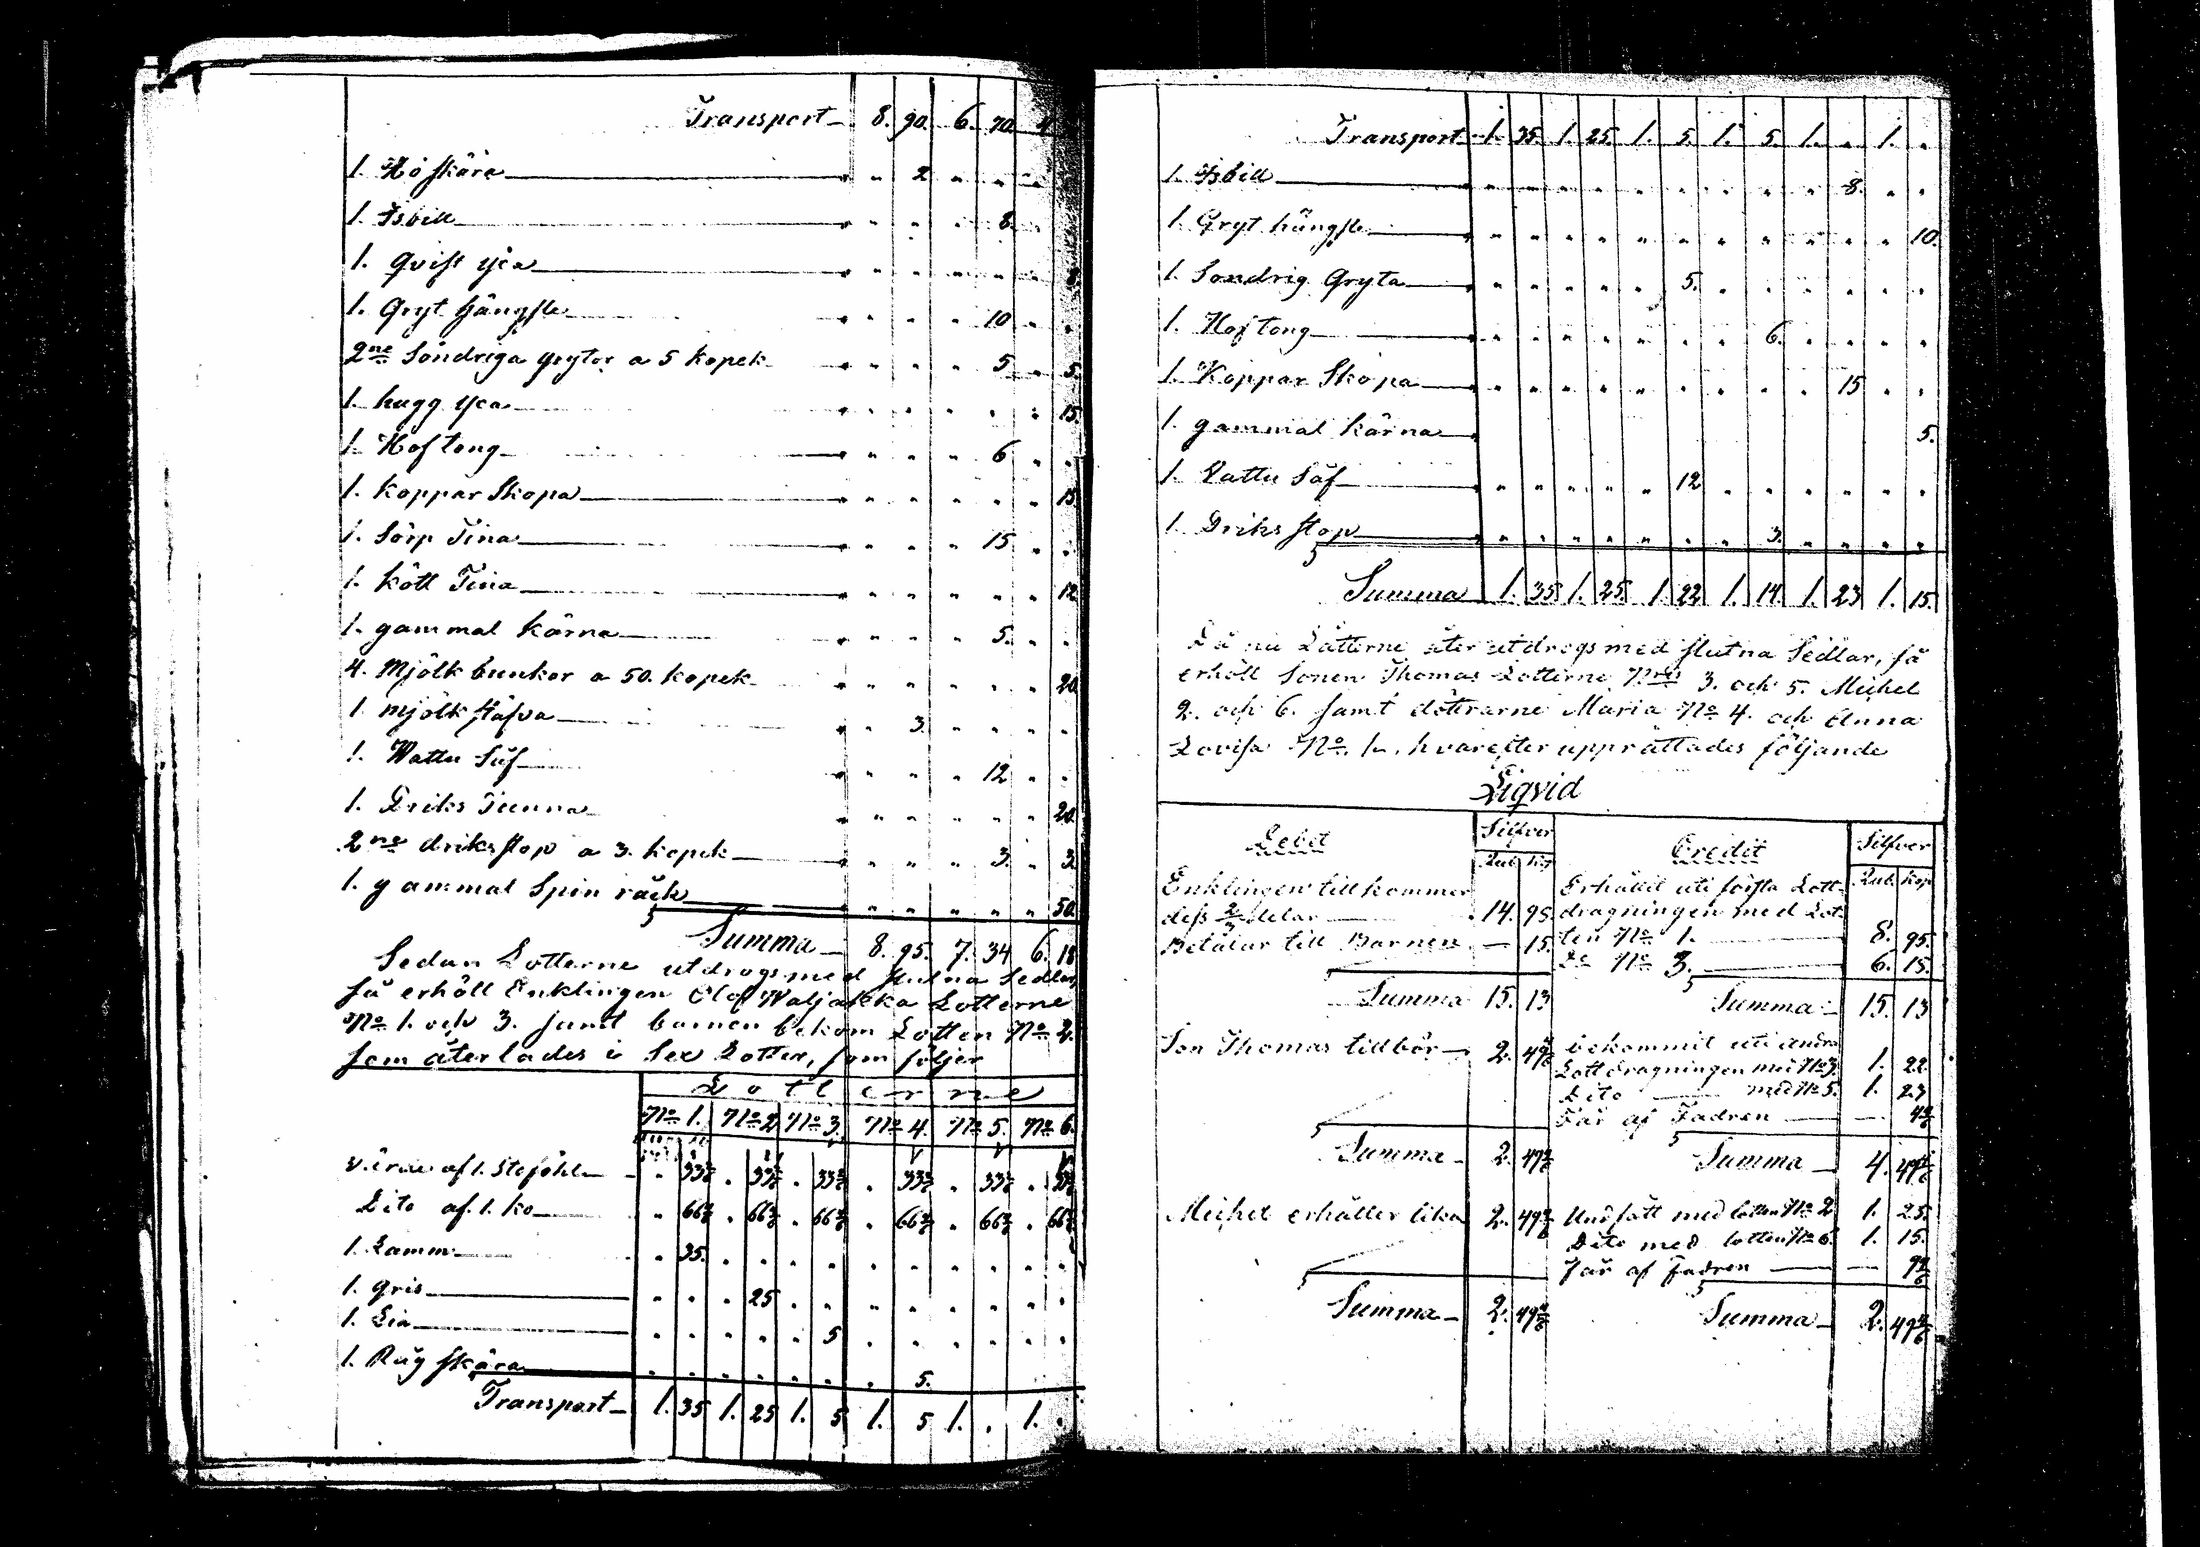 Transport 8. 90. 6. 70. 4
1. Höskära " " 2 " " "
1. Isbill " " " " 8.
1. Qvist yxa " " " " " " 8
1. Gryt hängsle " " " " 10 " "
2ne Söndriga grytor a 5 kopek " " " " 5 " 5.
1. hugg yxa " " " " " " 15
1. Hoftong " " " " 6 " "
1. Koppar Skopa " " " " " " 15
1. Sörp Tina " " " " 15 " "
1. Kött Tina " " " " " " 12
1. gammal kärna " " " " 5. " "
4. Mjölk bunkor a 50. kopek " " " " " " 20
1. mjölk stäfva " " 3. " " " "
1. Wattu Såf " " " " 12 " "
1. Driks Tunna " " " " " " 20.
2ne driksstop a 3. kopek " " " " 3. " 3
1. gammal Spin räck " " " " " " 50
Summa 8. 95. 7. 34 6. 18
Sedan Lotterne utdrogs med slutna Sedlar,
så erhöll Enklingen Olof Waljakka Lotterne
No 1. och 3. samt barnen bekom Lotten No 2.
som återlades i Sex Lotter, som följer
Lotterne
No 1. No 2 No 3. No 4. No 5. No 6.
Värde af 1. Stoföhl " 33 2/6 " 33 2/6 " 33 2/6 " 33 2/6 " 33 2/6 " 33 2/6
Dito af. 1. ko " 66 4/6 " 66 4/6 " 66 4/6 " 66 4/6 " 66 4/6 " 66 4/6
1. Lamm " 35. " " " " " " " " " "
1. gris " " " 25 " " " " " " " "
1. Lia " " " " " 5 " " " " " "
1. Råg skära " " " " " " " 5.
Transport 1. 35 1. 25 1. 5 1. 5 1. " 1. "
Transport 1. 35. 1. 25. 1. 5. 1. 5. 1. " 1. "
1. Isbill " " " " " " " " " 8. " "
1. Gryt hängsle " " " " " " " " " " " 10.
1. Sondrig Gryta " " " " " 5. " " " " " "
1. Hoftong " " " " " " " 6. " " " "
1. Koppar Skopa " " " " " " " " " 15 " "
1. gammal kärna 5.
1. Vattu Såf " " " " " 12 " " " " " "
1. Driks stop " " " " " " " 3. " " " "
Summa 1. 35 1. 25. 1. 22 1. 14. 1. 23 1. 15.
Då nu Lotterne åter utdrogs med slutna Sedlar, så
erhöll Sonen Thomas Lotterne Nris 3. och 5. Michel
2. och 6. samt dötrarne Maria No 4. och Anna
Lovisa No. 1., hvarefter upprättades följande
Liqvid
Debet Silfver Credit Silfver
Rub. Kop Rub. Kop
Enklingen tillkommer Erhållit uti första Lott-
dess 2/3 delar 14. 95. dragningen med Lot-
Betalar till Barnen — 15. ten No 1. 8. 95.
Do No 3. 6. 15.
Summa 15. 13 Summa 15. 13
Son Thomas tillbör 2. 49 4/6 bekommit uti andra
Lottdragningen med No 3. 1. 22.
Dito med No 5. 1. 23
Får af Fadren — 4 4/6
Summa 2. 49 4/6 Summa 4. 49 4/6
Michel erhåller lika 2. 49 4/6 Undfått med lotten No 2 1. 25.
Dito med lotten No 6. 1. 15.
Får af fadren — 9 4/6
Summa 2. 49 4/6 Summa 2. 49 4/6